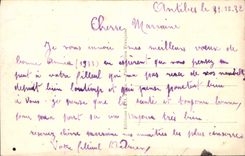 Antibes le 31.12.32
Cherre Marraine
Je vous envoie mes meilleurs vœux de
bonne Année (1933) en espérant que vous pensez un
peut à votre filleul qui n'a pas reçu de vos nouvelles
depuit bien lontemps et qui pense pourtant bien
à vous. Je pense que la santé et toujours bonne,
pour moi sa va toujours très bien
recevez chère marraine mes amitiés les plus sincères
Votre filleul